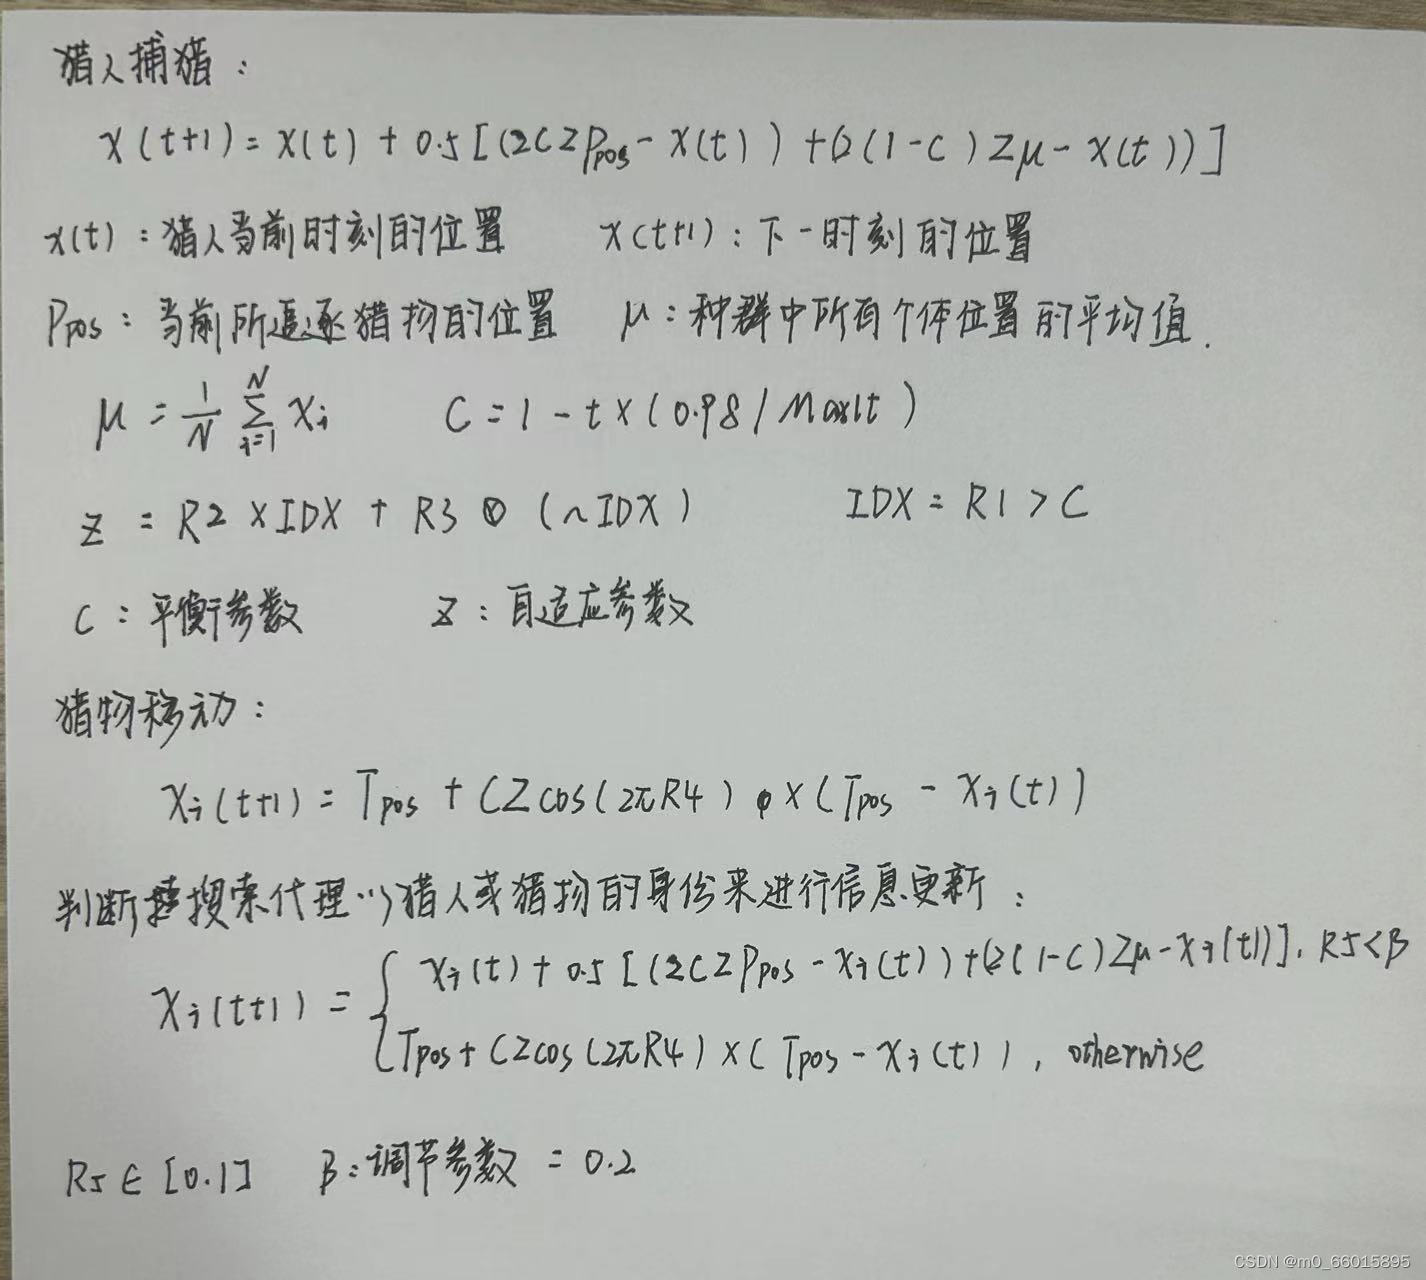 猎人捕猎：
x(t+1) = x(t) + 0.5[(2CZPpos - x(t)) + (2(1-C)Zμ - x(t))]
x(t)：猎人当前时刻的位置 x(t+1)：下一时刻的位置
Ppos：当前所追逐猎物的位置 μ：种群中所有个体位置的平均值.
μ = 1/N ∑_{i=1}^{N} x_i C = 1 - t×(0.98/MaxIt)
z = R2 × IDX + R3 ⊗ (~IDX) IDX = R1 > C
C：平衡参数 z：自适应参数
猎物移动：
x_i(t+1) = Tpos + CZcos(2πR4) × (Tpos - x_i(t))
判断搜索代理以猎人或猎物的身份来进行信息更新：
x_i(t+1) = { x_i(t) + 0.5[(2CZPpos - x_i(t)) + (2(1-C)Zμ - x_i(t))], R5<β
Tpos + CZcos(2πR4) × (Tpos - x_i(t)), otherwise
R5 ∈ [0.1] β：调节参数 = 0.2
CSDN @m0_66015895